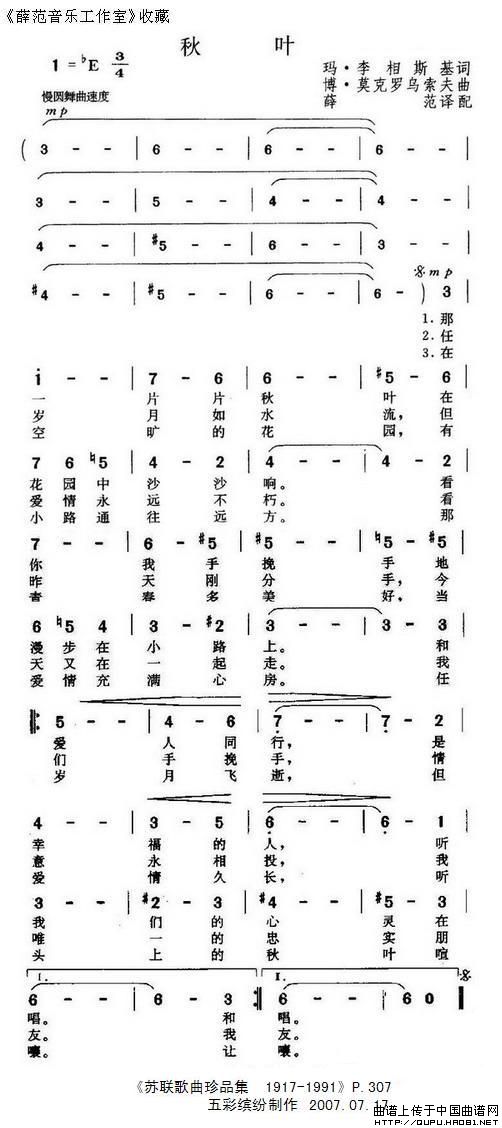 《薛范音乐工作室》收藏
秋 叶
1 = ♭E 3/4
玛·李相斯基词
博·莫克罗乌索夫曲
薛范译配
慢圆舞曲速度
mp
( 3 - - | 6 - - | 6 - - | 6 - - |
3 - - | 5 - - | 4 - - | 4 - - |
4 - - | #5 - - | 6 - - | 3 - - |
mp
#4 - - | #5 - - | 6 - - | 6 - ) 3 |
1. 那
2. 任
3. 在
1 - - | 7 - 6 | 6 - - | #5 - 6 |
一 片 片 秋 叶 在
岁 月 如 水 流, 但
空 旷 的 花 园, 有
7 6 ♮5 | 4 - 2 | 4 - - | 4 - 2 |
花 园 中 沙 沙 响。 看
爱 情 永 远 不 朽。 看
小 路 通 往 远 方。 那
7 - - | 6 - #5 | 6 - - | ♮5 - #5 |
你 我 手 挽 手 地
昨 天 刚 分 手, 今
青 春 多 美 好, 当
6 ♮5 4 | 3 - #2 | 3 - - | 3 - 3 |
漫 步 在 小 路 上。 和
天 又 在 一 起 走。 我
爱 情 充 满 心 房。 任
5 - - | 4 - 6 | 7 - - | 7 - 2 |
爱 人 同 行, 是
们 手 挽 手, 情
岁 月 飞 逝, 但
4 - - | 3 - 5 | 6 - - | 6 - 1 |
幸 福 的 人, 听
意 永 相 投, 我
爱 情 久 长, 听
3 - - | #2 - 3 | #4 - - | #5 - 3 |
我 们 的 心 灵 在
唯 一 的 忠 实 朋
头 上 的 秋 叶 喧
1. 2.
6 - - | 6 - 3 :‖ 6 - - | 6 0 ‖
唱。 和 唱。
友。 我 友。
嚷。 让 嚷。
《苏联歌曲珍品集 1917-1991》P.307
五彩缤纷制作 2007.07.17
曲谱上传于中国曲谱网
HTTP://QUPU.HAO81.NET